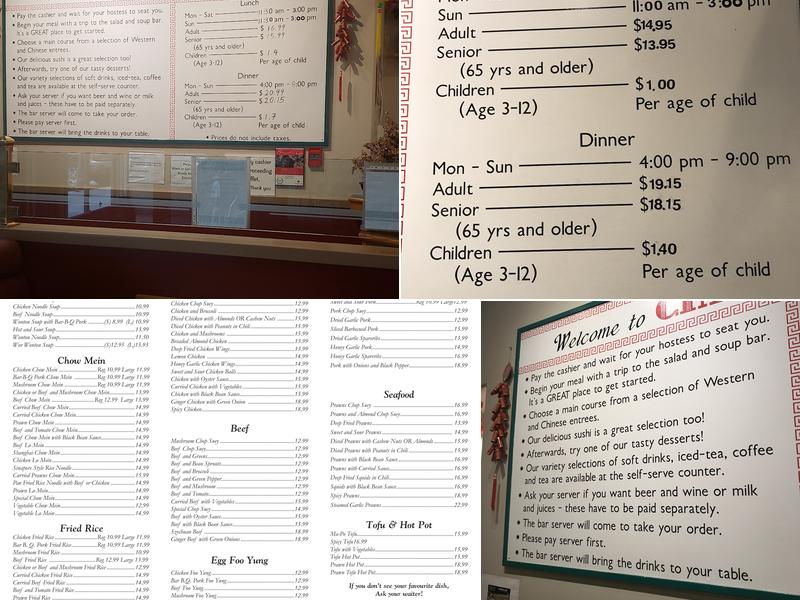 • Pay the cashier and wait for your hostess to seat you.
• Begin your meal with a trip to the salad and soup bar.
It's a GREAT place to get started.
• Choose a main course from a selection of Western
and Chinese entrees.
• Our delicious sushi is a great selection too!
• Afterwards, try one of our tasty desserts!
• Our variety selections of soft drinks, iced-tea, coffee
and tea are available at the self-serve counter.
• Ask your server if you want beer and wine or milk
and juices - these have to be paid separately.
• The bar server will come to take your order.
• Please pay server first.
• The bar server will bring the drinks to your table.
Lunch
Mon - Sat
Sun
Adult
Senior
(65 yrs and older)
Children
(Age 3-12)
Per age of child
Dinner
Mon - Sun 4:00 pm - 9:00 pm
Adult $20.99
Senior $20.15
(65 yrs and older)
Children $1.7
(Age 3-12) Per age of child
• Prices do not include taxes.
Sun 11:00 am - 3:00 pm
Adult $14.95
Senior $13.95
(65 yrs and older)
Children $1.00
(Age 3-12) Per age of child
Dinner
Mon - Sun 4:00 pm - 9:00 pm
Adult $19.15
Senior $18.15
(65 yrs and older)
Children $1.40
(Age 3-12) Per age of child
Chicken Noodle Soup 10.99
Beef Noodle Soup 10.99
Wonton Soup with Bar-B-Q Pork (S) 8.99 (L) 10.99
Hot and Sour Soup 13.99
Wonton Noodle Soup 11.50
War Wonton Soup (S)12.95 (L)15.95
Chow Mein
Chicken Chow Mein Reg 10.99 Large 11.99
Bar-B-Q Pork Chow Mein Reg 10.99 Large 11.99
Mushroom Chow Mein Reg 10.99 Large 11.99
Chicken or Beef and Mushroom Chow Mein 13.99
Beef Chow Mein Reg 12.99 Large 13.99
Curried Beef Chow Mein 14.99
Curried Chicken Chow Mein 14.99
Prawn Chow Mein 14.99
Beef and Tomato Chow Mein 14.99
Beef Chow Mein with Black Bean Sauce 14.99
Beef Lo Mein 14.99
Shanghai Chow Mein 14.99
Chicken Lo Mein 14.99
Singapore Style Rice Noodle 14.99
Curried Prawns Chow Mein 14.99
Pan Fried Rice Noodle with Beef or Chicken 14.99
Prawn Lo Mein 14.99
Special Chow Mein 14.99
Vegetable Chow Mein 12.99
Vegetable Lo Mein 14.99
Fried Rice
Chicken Fried Rice Reg 10.99 Large 11.99
Bar B.Q. Pork Fried Rice Reg 10.99 Large 11.99
Mushroom Fried Rice 10.99
Beef Fried Rice Reg 12.99 Large 13.99
Chicken or Beef and Mushroom Fried Rice 13.99
Curried Chicken Fried Rice 14.99
Curried Beef Fried Rice 14.99
Beef and Tomato Fried Rice 14.99
Prawn Fried Rice 14.99
Chicken Chop Suey 12.99
Chicken and Broccoli 13.99
Diced Chicken with Almonds OR Cashew Nuts 13.99
Diced Chicken with Peanuts in Chili 13.99
Chicken and Mushrooms 13.99
Breaded Almond Chicken 13.99
Deep Fried Chicken Wings 14.99
Lemon Chicken 14.99
Honey Garlic Chicken Wings 14.99
Sweet and Sour Chicken Balls 14.99
Chicken with Oyster Sauce 14.99
Curried Chicken with Vegetables 14.99
Chicken with Black Bean Sauce 15.99
Ginger Chicken with Green Onion 18.99
Spicy Chicken 18.99
Beef
Mushroom Chop Suey 12.99
Beef Chop Suey 12.99
Beef and Greens 12.99
Beef and Bean Sprouts 12.99
Beef and Broccoli 13.99
Beef and Green Pepper 13.99
Beef and Mushroom 13.99
Beef and Tomato 13.99
Curried Beef with Vegetables 15.99
Special Chop Suey 14.99
Beef with Oyster Sauce 15.99
Beef with Black Bean Sauce 15.99
Szechuan Beef 18.99
Ginger Beef with Green Onions 18.99
Egg Foo Yung
Chicken Foo Yung 12.99
Bar B.Q. Pork Foo Yung 12.99
Mushroom Foo Yung 12.99
Pork Chop Suey 12.99
Dried Garlic Pork 12.99
Sliced Barbecued Pork 13.99
Dried Garlic Spareribs 15.99
Honey Garlic Pork 14.99
Honey Garlic Spareribs 16.99
Pork with Onions and Black Pepper 18.99
Seafood
Prawns Chop Suey 16.99
Prawns and Almond Chop Suey 16.99
Deep Fried Prawns 15.99
Sweet and Sour Prawns 14.99
Diced Prawns with Cashew Nuts OR Almonds 15.99
Diced Prawns with Peanuts in Chili 15.99
Prawns with Black Bean Sauce 16.99
Prawns with Curried Sauce 16.99
Deep Fried Squids in Chili 16.99
Squids with Black Bean Sauce 16.99
Spicy Prawns 18.99
Steamed Garlic Prawns 22.99
Tofu & Hot Pot
Ma-Po Tofu 15.99
Spicy Tofu 16.99
Tofu with Vegetables 15.99
Tofu Hot Pot 15.99
Prawn Hot Pot 18.99
Prawn Tofu Hot Pot 18.99
If you don't see your favourite dish,
Ask your waiter!
Welcome to
• Pay the cashier and wait for your hostess to seat you.
• Begin your meal with a trip to the salad and soup bar.
It's a GREAT place to get started.
• Choose a main course from a selection of Western
and Chinese entrees.
• Our delicious sushi is a great selection too!
• Afterwards, try one of our tasty desserts!
• Our variety selections of soft drinks, iced-tea, coffee
and tea are available at the self-serve counter.
• Ask your server if you want beer and wine or milk
and juices - these have to be paid separately.
• The bar server will come to take your order.
• Please pay server first.
• The bar server will bring the drinks to your table.